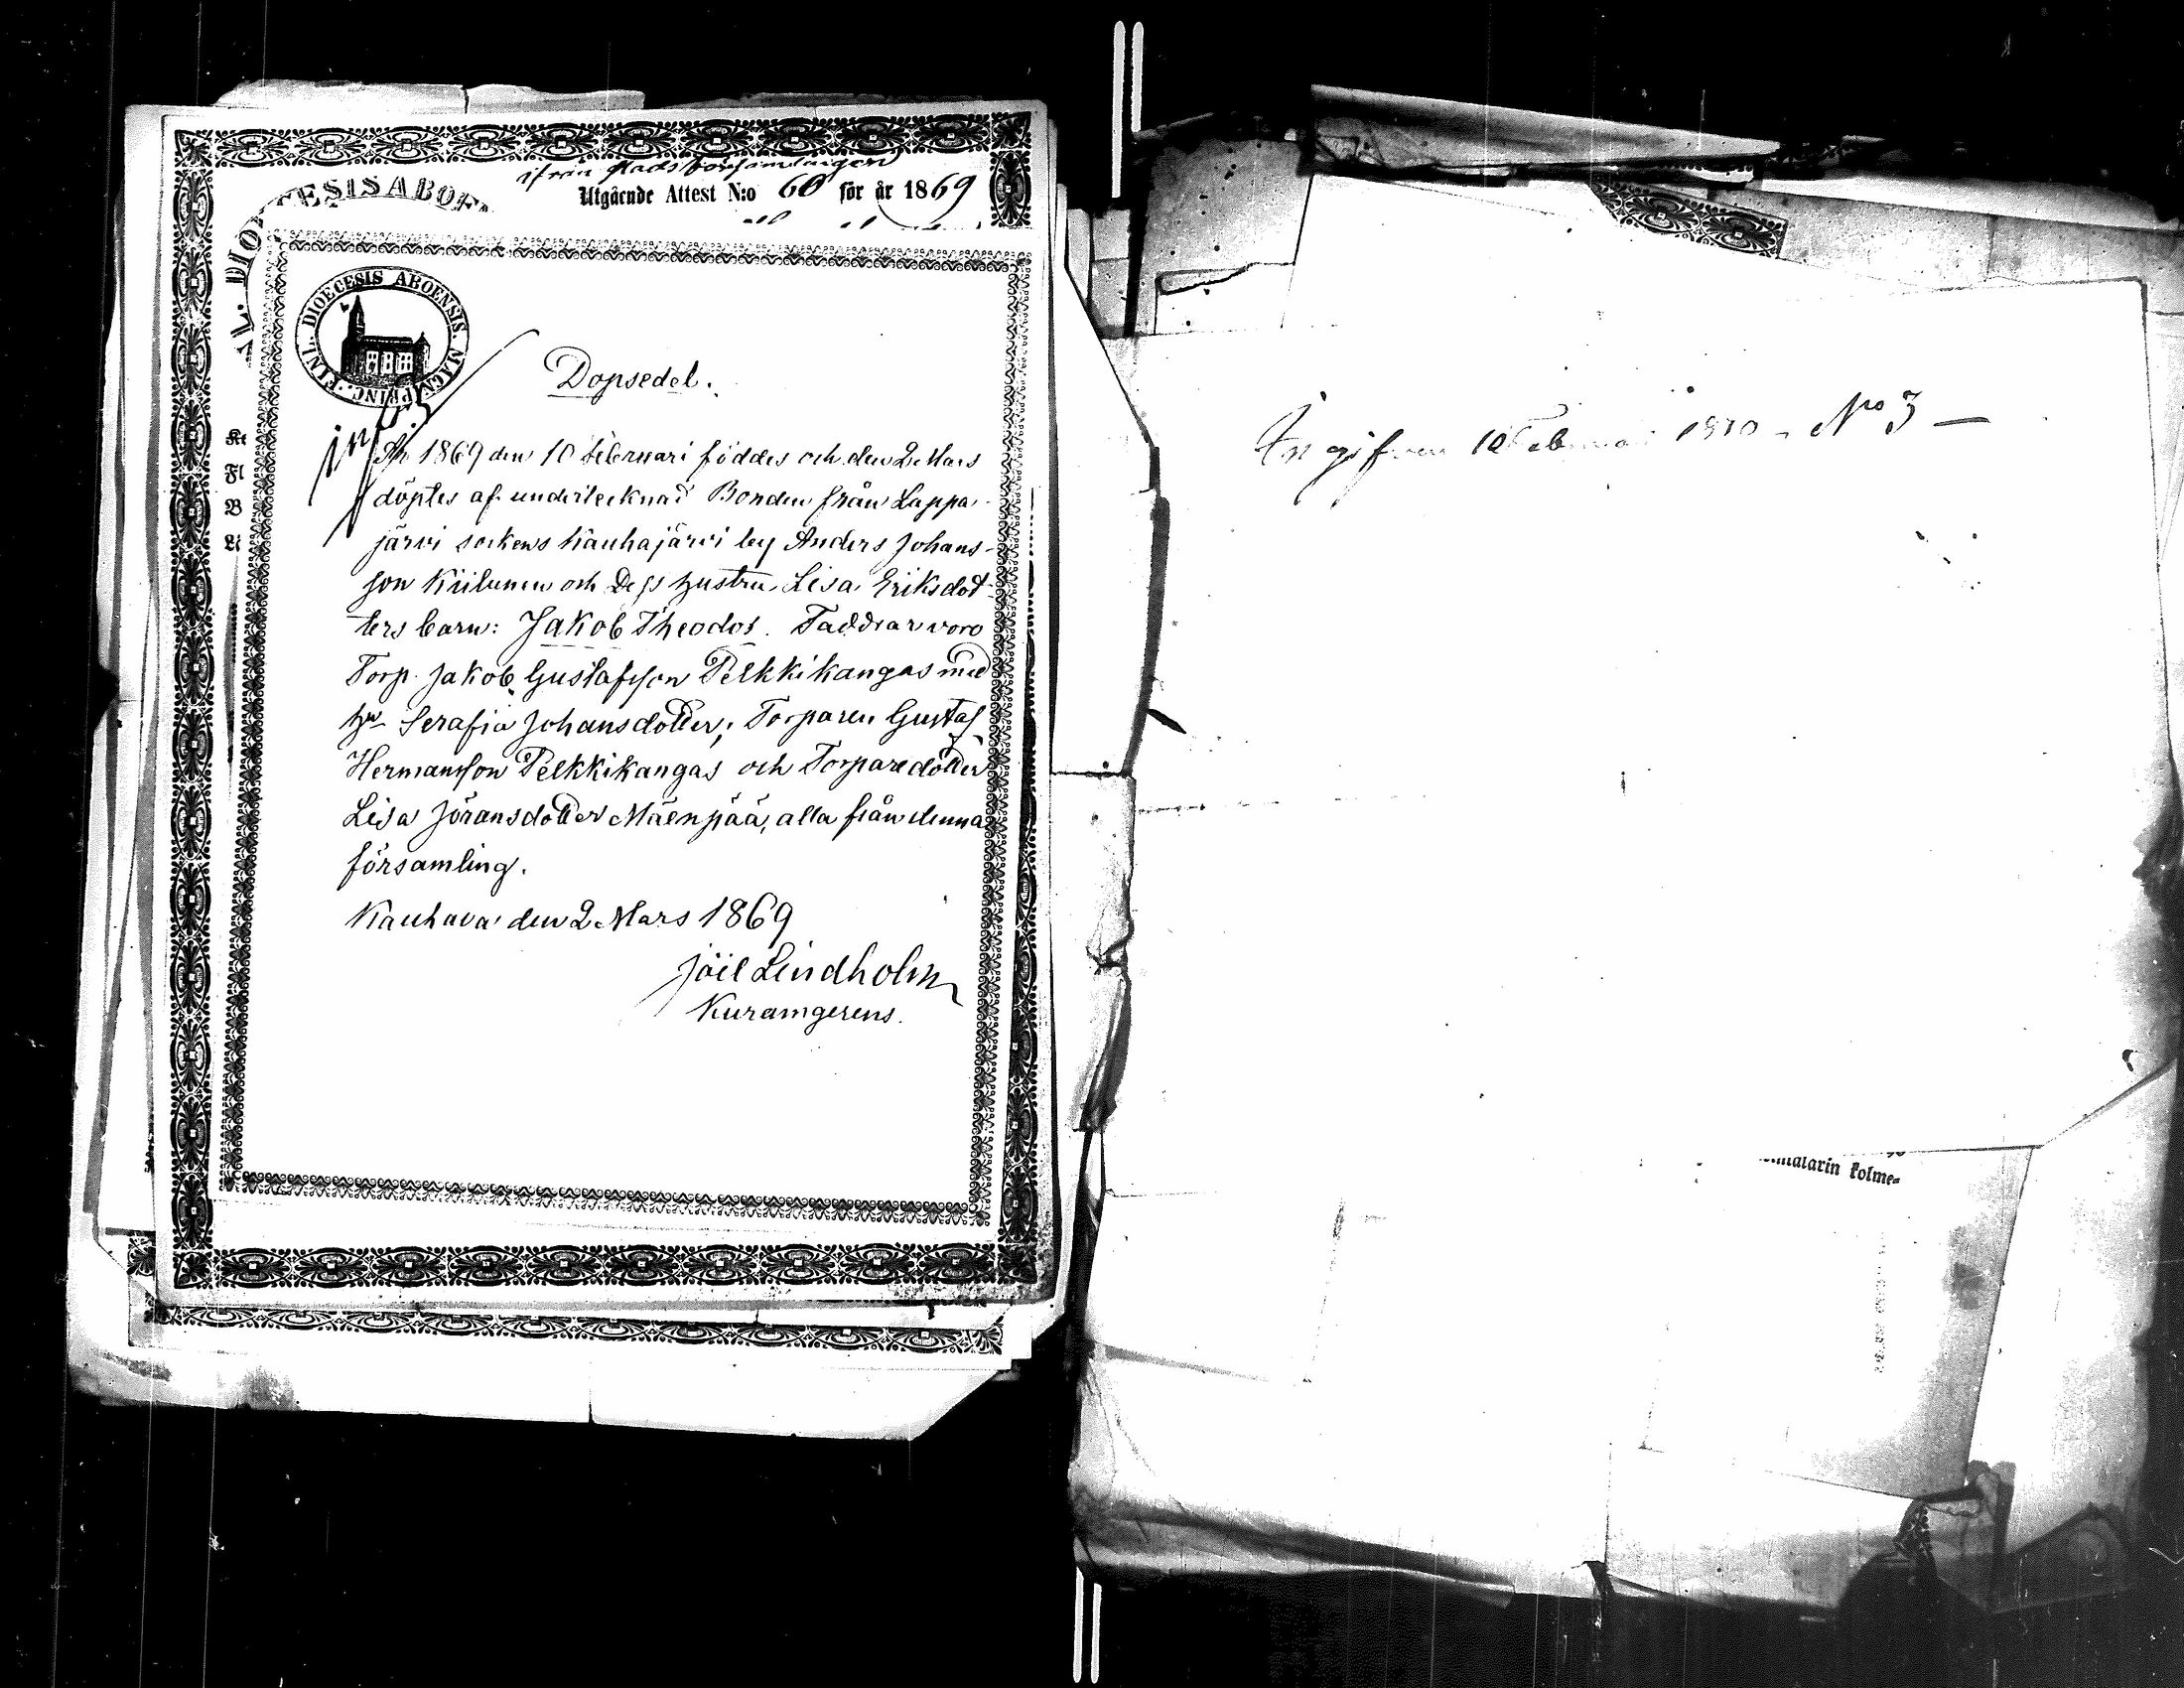 ifrån stadsförsamlingen
Utgående Attest N:o 60 för år 1869
FINL. DIOECESIS ABOENSIS. MAGN. PRINC.
Dopsedel.
År 1869 den 10 Februari föddes och den 2 Mars
döptes af undertecknad Bonden från Lappa-
järvi sockens Kauhajärvi by Anders Johans-
son Kiilunen och Dess hustru Lisa Eriksdot-
ters barn: Jakob Theodor. Faddrar voro
Torp. Jakob Gustafsson Pelkkikangas med
hu Serafia Johansdotter; Torparen Gustaf
Hermansson Pelkkikangas och Torparedotter
Lisa Jöransdotter Mäenpää, alla från denna
församling.
Kauhava den 2 Mars 1869
Joël Lindholm
Kuramgerens.
Ingifven 10 Februari 1870 - No 3 -
kolme-